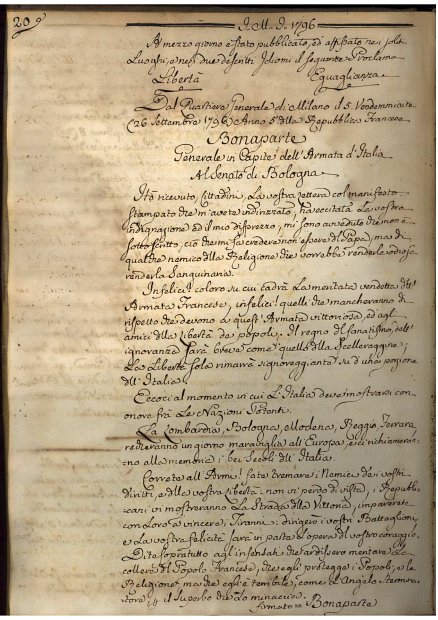 209
I. M. I. 1796
A mezzo giorno è stato pubblicato, ed affisso ne' soliti
Luoghi, e nesi due descritti Idiomi il seguente Proclama
Libertà Eguaglianza
Dal Quartiere Generale di Milano il 5. Vendemmiaire
(26 Settembre 1796) Anno 5° della Repubblica Francese
Bonaparte
Generale in Capite dell'Armata d'Italia
Al Senato di Bologna
Hò ricevuto, Cittadini, La vostra Lettera col manifesto
stampato che m'avete indirizzato, hà eccitata La vostra
indignazione ed il mio disprezzo; mi sono avveduto che non è
sottoscritto, ciò che mi fa credere non essere di Papa, ma di
qualche nemico della Religione che vorrebbe renderla odiosa
renderla Sanguinaria.
Infelici! coloro su cui cadrà La meritata vendetta dell'
Armata Francese, infelici! quelli che mancheranno di
rispetto che devono a quest'Armata vittoriosa, ed agl'
amici della libertà de popoli. Il regno del fanatismo, dell'
ignoranza sarà breve come quello della Scelleraggine;
La Libertà sola rimarrà signoreggiante su d'una porzione
dell'Italia.
Eccoci al momento in cui L'Italia deve mostrarsi con
onore frà Le Nazioni Potenti.
La Lombardia, Bologna, Modena, Reggio, Ferrara,
recheranno un giorno maraviglia all'Europa, e ci richiameran-
no alla memoria i bei Secoli dell'Italia.
Correte all'Armi! fate tremare i Nemici dei vostri
diritti, e della vostra libertà. non vi perdo di vista; i Repubbli-
cani vi mostreranno La Strada della Vittoria, imparerete
con Loro a vincere i Tiranni. dirigerò i vostri Battaglioni,
e La vostra felicità sarà in parte L'opera del vostro coraggio.
Dite sopratutto agl'insensati che ardissero meritare La
collera del Popolo Francese, che egli protegge i Popoli, e la
Religione ma che egli è terribile come L'Angelo Stermina-
tore, il superbo che lo minaccia.
firmato = Bonaparte